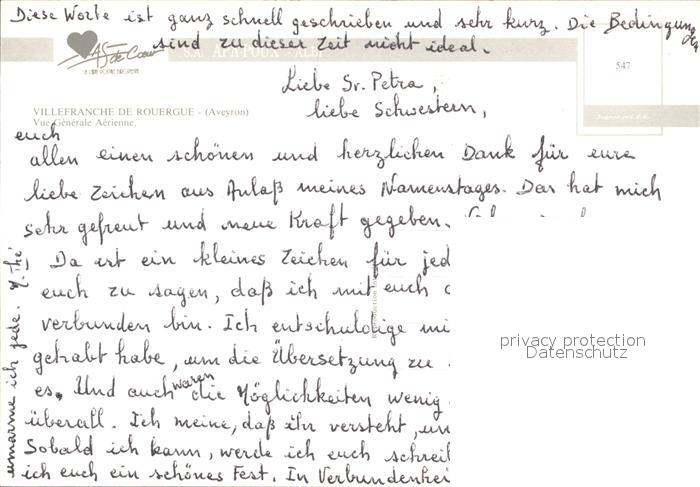 Diese Worte ist ganz schnell geschrieben und sehr kurz. Die Bedingungen
sind zu dieser Zeit nicht ideal.
AS de Cœur
S.A. APA-POUX - ALBI
547
Liebe Sr. Petra,
liebe Schwestern,
VILLEFRANCHE DE ROUERGUE - (Aveyron)
Vue Générale Aérienne.
euch
allen einen schönen und herzlichen Dank für eure
liebe Zeichen aus Anlaß meines Namenstages. Das hat mich
sehr gefreut und neue Kraft gegeben.
Da ist ein kleines Zeichen für jed
euch zu sagen, daß ich mit euch
verbunden bin. Ich entschuldige mi
gehabt habe, um die Übersetzung zu
es. Und auch waren die Möglichkeiten wenig
überall. Ich meine, daß ihr versteht, un
Sobald ich kann, werde ich euch schrei
ich euch ein schönes Fest. In Verbundenhei
umarme ich jede.
privacy protection
Datenschutz